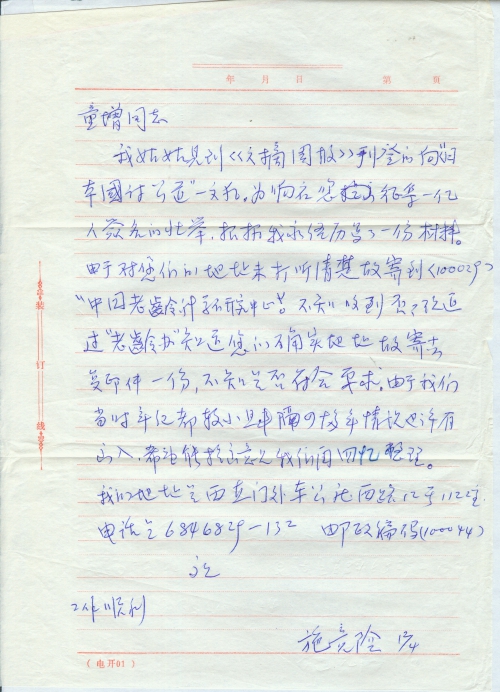 年 月 日 第 页
童增同志
我姑姑见到《文摘周报》刊登的“向日
本国讨公道”一文后,为响应您提出征集一亿
人签名的壮举,根据我亲身经历写了一份材料。
由于对您们的地址未打听清楚故寄到(100029)
“中国老龄科学研究中心”。不知收到否?后通
过“老龄办”知道您的确实地址故寄去
复印件一份,不知是否符合要求。由于我们
当时年纪都较小且事隔50多年情况也许有
出入,希望能提出意见我们再回忆整理。
我们地址是西直门外车公庄西路12号112室
电话是6846829-132 邮政编码(100044)
祝
工作顺利
施 险 4
装 订 线
(电开01)